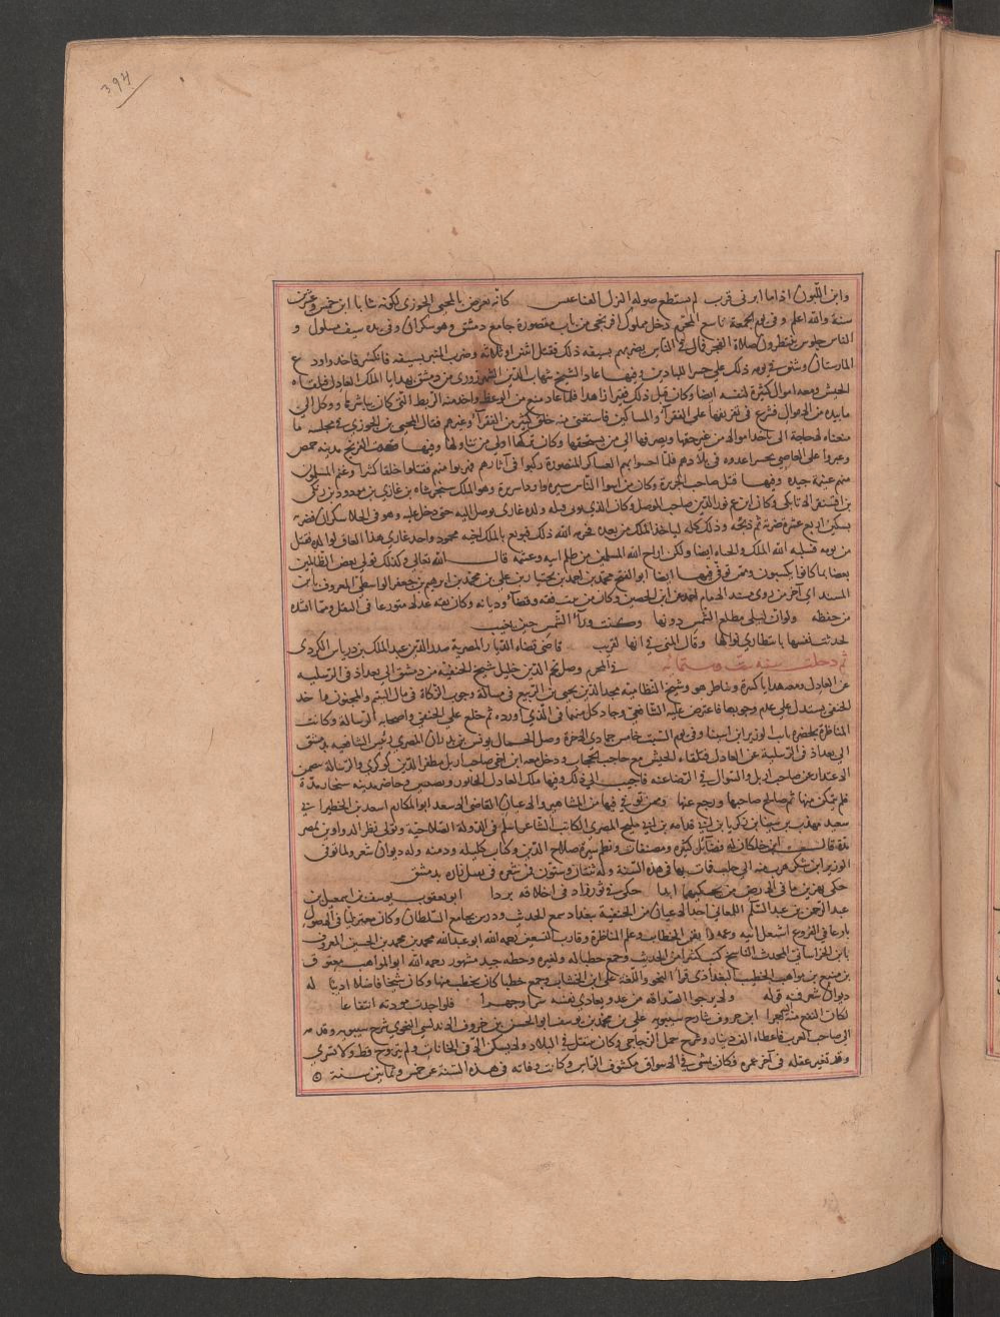 394
وابن اللبون اذا ما لز فى قرن لم يستطع صولة البزل القناعيس كانه يعرض بالمحيى الجوزى لكونه شابا ابن خمس وعشرين
سنة والله اعلم وفى يوم الجمعة تاسع المحرم دخل مملوك افرنجى من باب مقصورة جامع دمشق وهو سكران وفى يده سيف مسلول و
الناس جلوس ينتظرون صلاة الفجر فمال على الناس يضربهم بسيفه ذلك فقتل اثنين او ثلاثة وضرب المنبر بسيفه فانكسر فاخذ واودع
المارستان وشنق فى يومه ذلك على جسر اللبادين وفيها عاد الشيخ شهاب الدين السهروردى من دمشق بهدايا الملك العادل فتلقاه
الجيش ومعه اموال كثيرة لنفسه ايضا وكان قبل ذلك فقيرا زاهدا فلما عاد منع من الوعظ واخذت منه الربط التى كان يباشرها ووكل الى
ما بيده من الاموال فشرع فى تفريقها على الفقرآء والمساكين فاستغنى منه خلق كثير من الفقرآء وغيرهم فقال المحيى بن الجوزى فى مجلسه ما
معناه لا حاجة الى ياخذ اموالا من غير حقها ويصرفها الى من يستحقها وكان تركها اولى من تناولها وفيها قصدت الفرنج مدينة حمص
وعبروا على العاصى بجسر اعدوه فى بلادهم فلما احسوا بهم العساكر المنصورة ركبوا فى آثارهم فهربوا منهم فقتلوا خلقا كثيرا وغنم المسلمون
منهم غنيمة جيدة وفيها قتل صاحب الجزيرة وكان من اسوا الناس سيرة واردأ سريرة وهو الملك سنجر شاه بن غازى بن مودود بن زنكى
بن اقسنقر الاتابكى وكان ابن عم نور الدين صاحب الموصل وكان الذى تولى قتله ولده غازى توصل اليه حتى دخل عليه وهو فى الخلا سكران فضربه
بسكين اربع عشرة ضربة ثم ذبحه وذلك كله لياخذ الملك من بعده فحرمه الله ذلك فبويع بالملك لاخيه محمود واخذ غازى هذا العاق لوالده فقتل
من يومه فسلبه الله الملك والحياة ايضا ولكن اراح الله المسلمين من ظلم ابيه وغشمه قال الله تعالى وكذلك نولى بعض الظالمين
بعضا بما كانوا يكسبون وممن توفى فيها ايضا ابو الفتح محمد بن احمد بن بختيار بن على بن محمد بن ابرهيم بن جعفر الواسطى المعروف بابن
المسنداى آخر من روى مسند الامام احمد عن ابن الحصين وكان من بيت فقه وقضآء وديانة وكان ثقة عدلا متورعا فى النقل ومما انشده
من حفظه ولو ان ليلى مطلع الشمس دونها وكنت ورآء الشمس حين تغيب
لحدثت نفسى بانتظارى نوالها وقال المنى لى انها لقريب قاضى قضاة الديار المصرية صدر الدين عبد الملك بن درباس الكردى
ثم دخلت سنة ست وستمائة فى المحرم وصل نجم الدين خليل شيخ الحنفية من دمشق الى بغداد فى الرسلية
عن العادل ومعه هدايا كثيرة وناظر هو وشيخ النظامية مجد الدين يحيى بن الربيع فى مسالة وجوب الزكاة فى مال اليتيم والمجنون واخذ
الحنفى يستدل على عدم وجوبها فاعترض عليه الشافعى وجاد كل منهما فى الذى اورده ثم خلع على الحنفى واصحابه الرسالة وكانت
المناظرة بحضرة نائب الوزير ابن امسينا وفى يوم السبت خامس جمادى الاخرة وصل الجمال يونس بن بدران المصرى رئيس الشافعية بدمشق
الى بغداد فى الرسلية عن العادل فتلقاه الجيش مع حاجب الحجاب ودخل معه ابن اخى صاحب اربل مظفر الدين كوكرى والرسالة تتضمن
الاعتذار عن صاحب اربل والسوال فى الرضا عنه فاجيب الى ذلك وفيها ملك العادل الخابور ونصيبين وحاصر مدينة سنجار مدة
فلم يتمكن منها ثم صالح صاحبها ورجع عنها وممن توفى فيها من المشاهير والاعيان القاضى الاسعد ابو المكارم اسعد بن الخطير ابى
سعيد مهذب بن مينا بن زكريا بن ابى قدامة بن ابى مليح المصرى الكاتب الشاعر اسلم فى الدولة الصلاحية وتولى نظر الدواوين بمصر
مدة قال ابن خلكان له فضايل كثيرة ومصنفات ونظم سيرة صلاح الدين وكتاب كليلة ودمنة وله ديوان شعر ولما توفى
الوزير ابن شكر هرب منه الى حلب فمات بها فى هذه السنة وله ثنتان وستون فى شعره فى ثقيل زاره بدمشق
حكى نهرين ما فى الارض من يحكيهما ابدا حكى فى خلقه ثورا وفى اخلاقه بردا ابو يعقوب يوسف بن اسمعيل بن
عبد الرحمن بن عبد السلام اللمغانى احد الاعيان من الحنفية ببغداد سمع الحديث ودرس بجامع السلطان وكان معتزليا فى الاصول
بارعا فى الفروع اشتغل على ابيه وعمه واتقن الخلاف وعلم المناظرة وقارب التسعين رحمه الله ابو عبد الله محمد بن محمد بن الحسين المعروف
بابن الخراسانى المحدث الناسخ كتب كثيرا من الحديث وجمع خطبا له ولغيره وخطه جيد مشهور رحمه الله ابو المواهب معتوق
بن منيع بن مواهب الخطيب البغدادى قرا النحو واللغة على ابن الخشاب وجمع خطبا كان يخطب منها وكان شيخا فاضلا اديبا له
ديوان شعر فمنه قوله ولا يرجوا الصداقة من عدو يعادى نفسه سرا وجهرا فلو اجدت مودته انتفاعا
لكان النفع منه اليه اجرا ابن خروف شارح سيبويه على بن محمد بن يوسف ابو الحسن بن خروف الاندلسى النحوى شرح سيبويه وقدمه
الى صاحب المغرب فاعطاه الف دينار وشرح جمل الزجاجى وكان يتنقل فى البلاد ولا يسكن الا فى الخانات ولم يتزوج قط ولا تسرى
وقد تغير عقله فى آخر عمره فكان يمشى فى الاسواق مكشوف الراس وكانت وفاته فى هذه السنة عن خمس وثمانين سنة